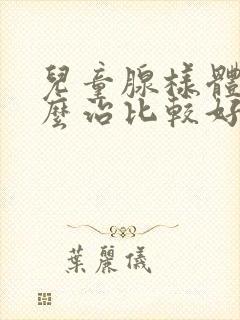 兒童腺樣體
麼治比較好
葉麗儀